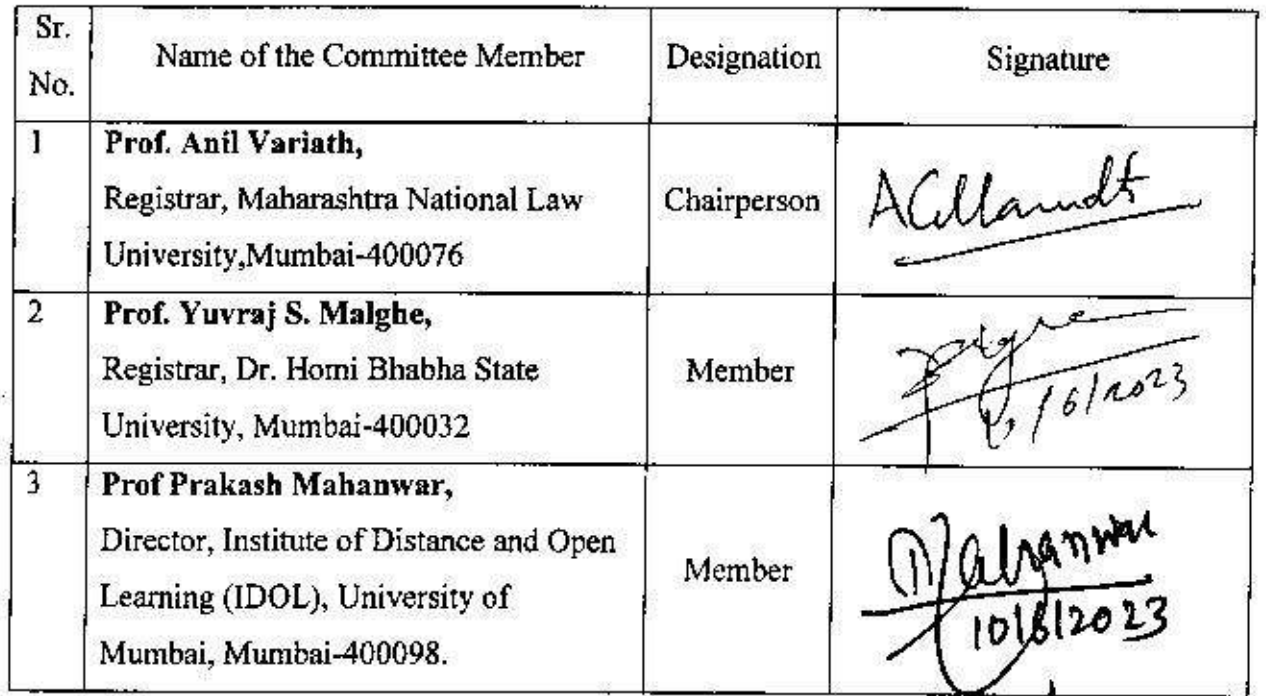 Sr. No.
Name of the Committee Member
Designation
Signature
1
Prof. Anil Variath,
Registrar, Maharashtra National Law
University,Mumbai-400076
Chairperson
2
Prof. Yuvraj S. Malghe,
Registrar, Dr. Homi Bhabha State
University, Mumbai-400032
Member
/6/2023
3
Prof Prakash Mahanwar,
Director, Institute of Distance and Open
Learning (IDOL), University of
Mumbai, Mumbai-400098.
Member
10/6/2023